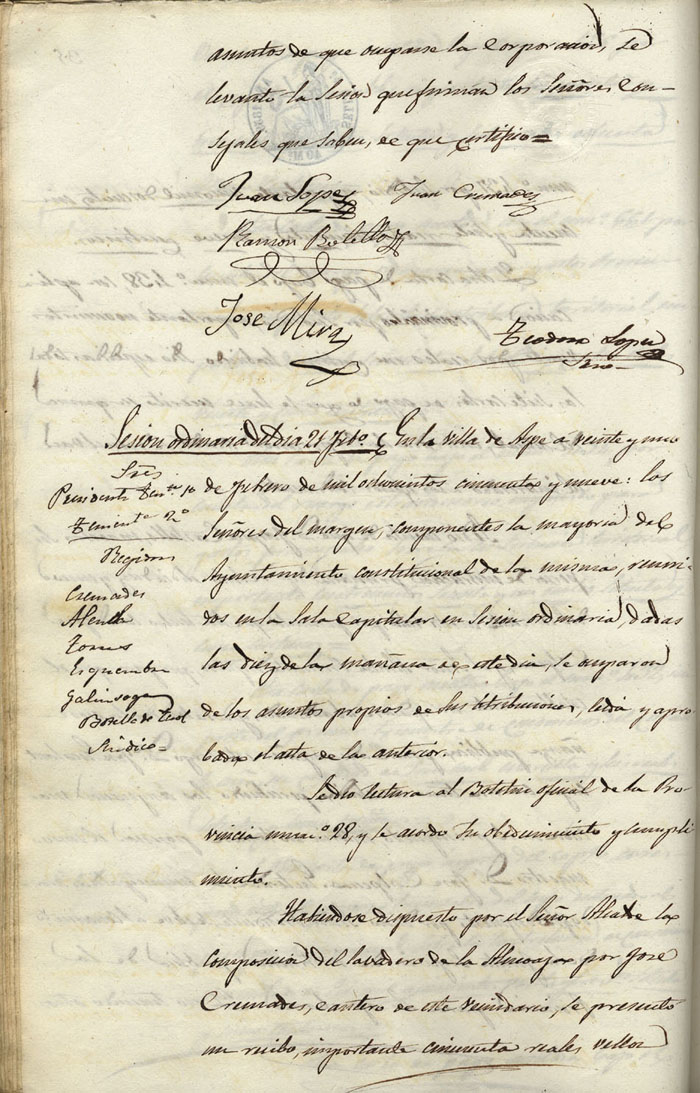 asuntos de que ocuparse la Corporacion, se
levantó la Sesion que firman los Señores Con-
sejales que saben, de que certifico=
Juan Lopez
Juan Cremades
Ramon Botella
Jose Mira
Teodoro Lopez
Srio
Sesion ordinaria del dia 21 Febo.
En la Villa de Aspe a veinte y uno
Sres
Presidente Tente. 1º
Teniente 2º
Regidores
Cremades
Alenda
Torres
Esquembre
Galinsoga
Botella de Teod
Sindico=
de Febrero de mil ochocientos cincuenta y nueve: los
Señores del margen, componentes la mayoria del
Ayuntamiento constitucional de la misma, reuni-
dos en la Sala Capitular en Sesion ordinaria, dadas
las diez de la mañana de este dia, se ocuparon
de los asuntos propios de sus atribuciones, leida y apro-
bada el acta de la anterior.
Se dio lectura al Boletin oficial de la Pro-
vincia numo. 28, y se acordó su obedecimiento y cumpli-
miento.
Habiendose dispuesto por el Señor Alcalde la
composicion del lavadero de la Almoajar por Jose
Cremades, cantero de este vecindario, se presentó
un recibo, importante cincuenta reales vellon